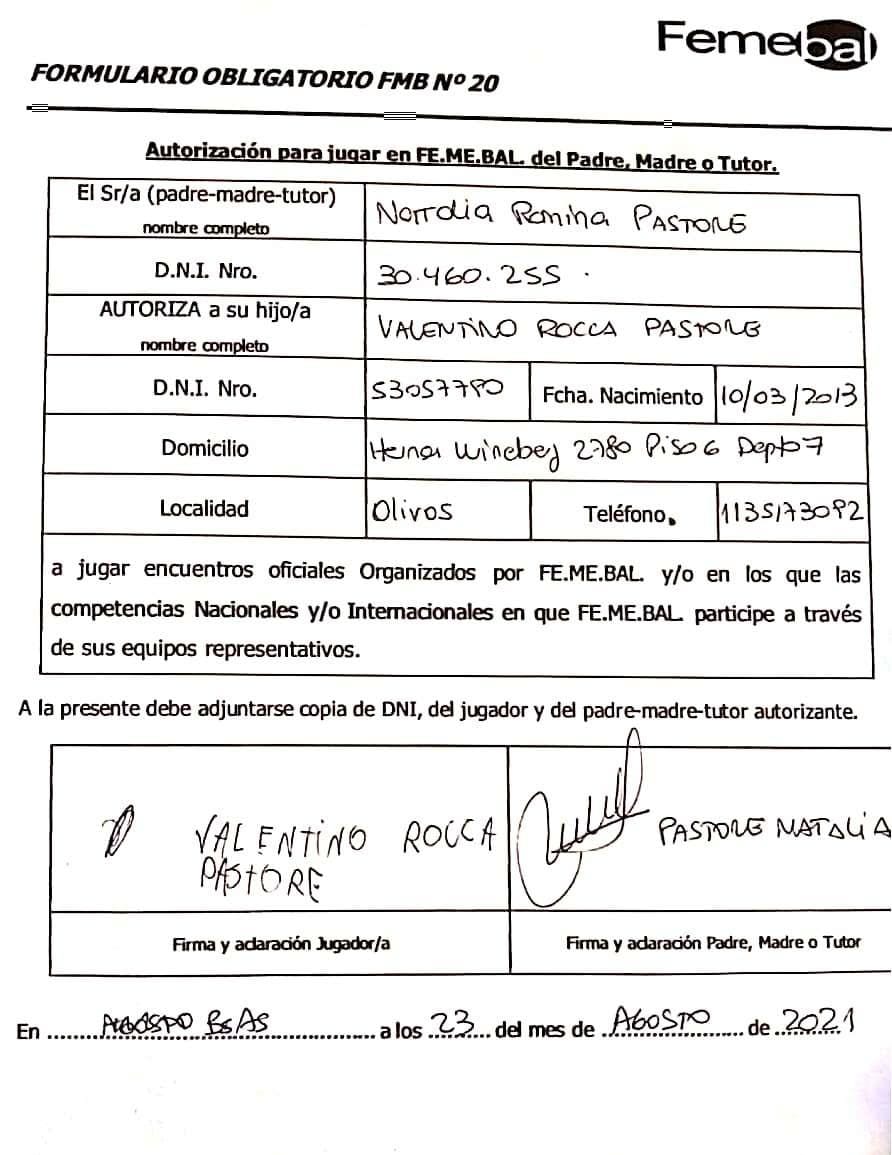 Femebal
FORMULARIO OBLIGATORIO FMB Nº 20
Autorización para jugar en FE.ME.BAL. del Padre, Madre o Tutor.
El Sr/a (padre-madre-tutor)
nombre completo
Romina PASTORE
D.N.I. Nro.
30.460.255
AUTORIZA a su hijo/a
nombre completo
VALENTINO ROCCA PASTORE
D.N.I. Nro.
Fcha. Nacimiento
10/03/2013
Domicilio
2780 Piso 6 Depto 7
Localidad
Olivos
Teléfono.
a jugar encuentros oficiales Organizados por FE.ME.BAL. y/o en los que las
competencias Nacionales y/o Internacionales en que FE.ME.BAL. participe a través
de sus equipos representativos.
A la presente debe adjuntarse copia de DNI, del jugador y del padre-madre-tutor autorizante.
VALENTINO ROCCA
PASTORE
PASTORE NATALIA
Firma y aclaración Jugador/a
Firma y aclaración Padre, Madre o Tutor
En BsAs a los 23 del mes de AGOSTO de 2021